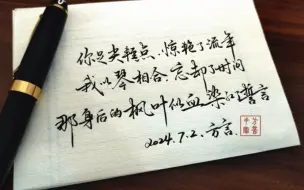 你是尖轻点.惊艳了流年
我以琴相合.忘却了时间
那身后的枫叶似血染红了誓言
2024.7.2.方言.